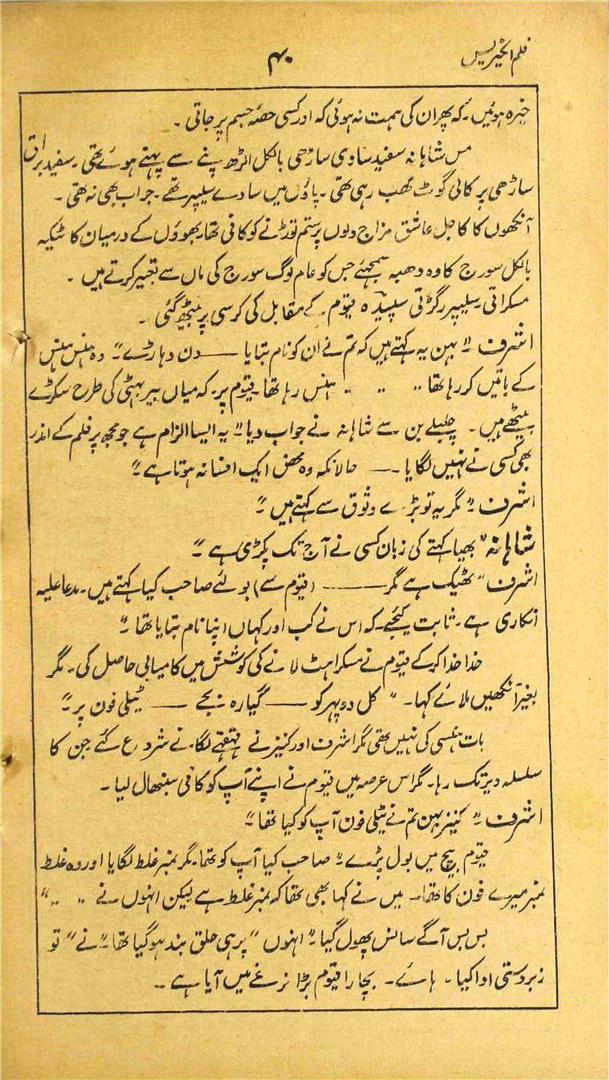 فلم ایکٹریس
۴۰
خیرہ ہوئیں۔ کہ پھر ان کی ہمت نہ ہوئی کہ اور کسی حصۂ جسم پر جاتی۔
مس شاہانہ سفید ساوی ساڑھی بالکل الڑھ پنے سے پہنے ہوئے تھی۔ سفید براق
ساڑھی پر کالی گوٹ کھب رہی تھی۔ پاؤں میں سادے سلیپر تھے۔ جراب بھی نہ تھی۔
آنکھوں کا کاجل عاشق مزاج دلوں پر ستم توڑنے کو کافی تھا۔ بھوؤں کے درمیان کا ٹیکہ
بالکل سورج کا وہ دھبہ سمجھئے جس کو عام لوگ سورج کی ماں سے تعبیر کرتے ہیں۔
مسکراتی سلیپر رگڑتی قیوم کے مقابل کی کرسی پر بیٹھ گئی۔
اشرف "بہن یہ کہتے ہیں کہ تم نے ان کو نام بتایا ـــ دن دہاڑے" وہ ہنس ہنس
کے باتیں کر رہا تھا .. .. . ہنس رہا تھا قیوم پر۔ کہ میاں بیر بہٹی کی طرح سکڑے
بیٹھے ہیں۔ چلبلے پن سے شاہانہ نے جواب دیا" یہ ایسا الزام ہے جو مجھ پر فلم کے اندر
بھی کسی نے نہیں لگایا۔ ـــ حالانکہ وہ محض ایک افسانہ ہوتا ہے"
اشرف۔ "مگر یہ تو بڑے وثوق سے کہتے ہیں"
شاہانہ "بھیا کہتے کی زبان کسی نے آج تک پکڑی ہے"
اشرف "ٹھیک ہے مگر ـــــ (قیوم سے) بولئے صاحب کیا کہتے ہیں۔ مدعا علیہ
انکاری ہے۔ ثابت کیجئے۔ کہ اس نے کب اور کہاں اپنا نام بتایا تھا"
خدا خدا کر کے قیوم نے مسکراہٹ لانے کی کوشش میں کامیابی حاصل کی۔ مگر
بغیر آنکھیں ملائے کہا۔ "کل دوپہر کو ـــ گیارہ بجے ـــ ٹیلی فون پر"
بات ہنسی کی نہیں تھی مگر اشرف اور کنیز نے قہقہے لگانے شروع کئے جن کا
سلسلہ دیر تک رہا۔ مگر اس عرصہ میں قیوم نے اپنے آپ کو کافی سنبھال لیا۔
اشرف۔ "کنیز بہن تم نے ٹیلی فون آپ کو کیا تھا"
قیوم بیچ میں بول پڑے" صاحب کیا آپ کو تھا۔ مگر نمبر غلط لگایا اور وہ غلط
نمبر میرے فون کا تھا۔ میں نے کہا بھی تھا کہ نمبر غلط ہے لیکن انہوں نے .. .."
بس بس آگے سانس پھول گیا۔ "انہوں" پر ہی حلق بند ہو گیا تھا۔ "نے" تو
زبردستی ادا کیا۔ ہائے۔ بچارا قیوم بڑا نرغے میں آیا ہے۔